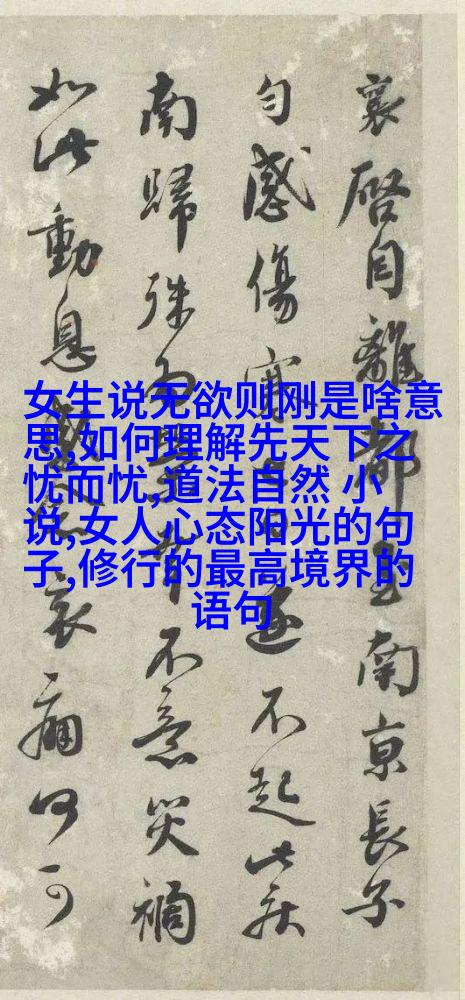 襄啓自離都至南京長子
勻感傷寒遂不起此疾
南歸殊為不意災禍
如此動息感哀痛何可
女生说无欲则刚是啥意
思,如何理解先天下之
忧而忧,道法自然 小
说,女人心态阳光的句
子,修行的最高境界的
语句